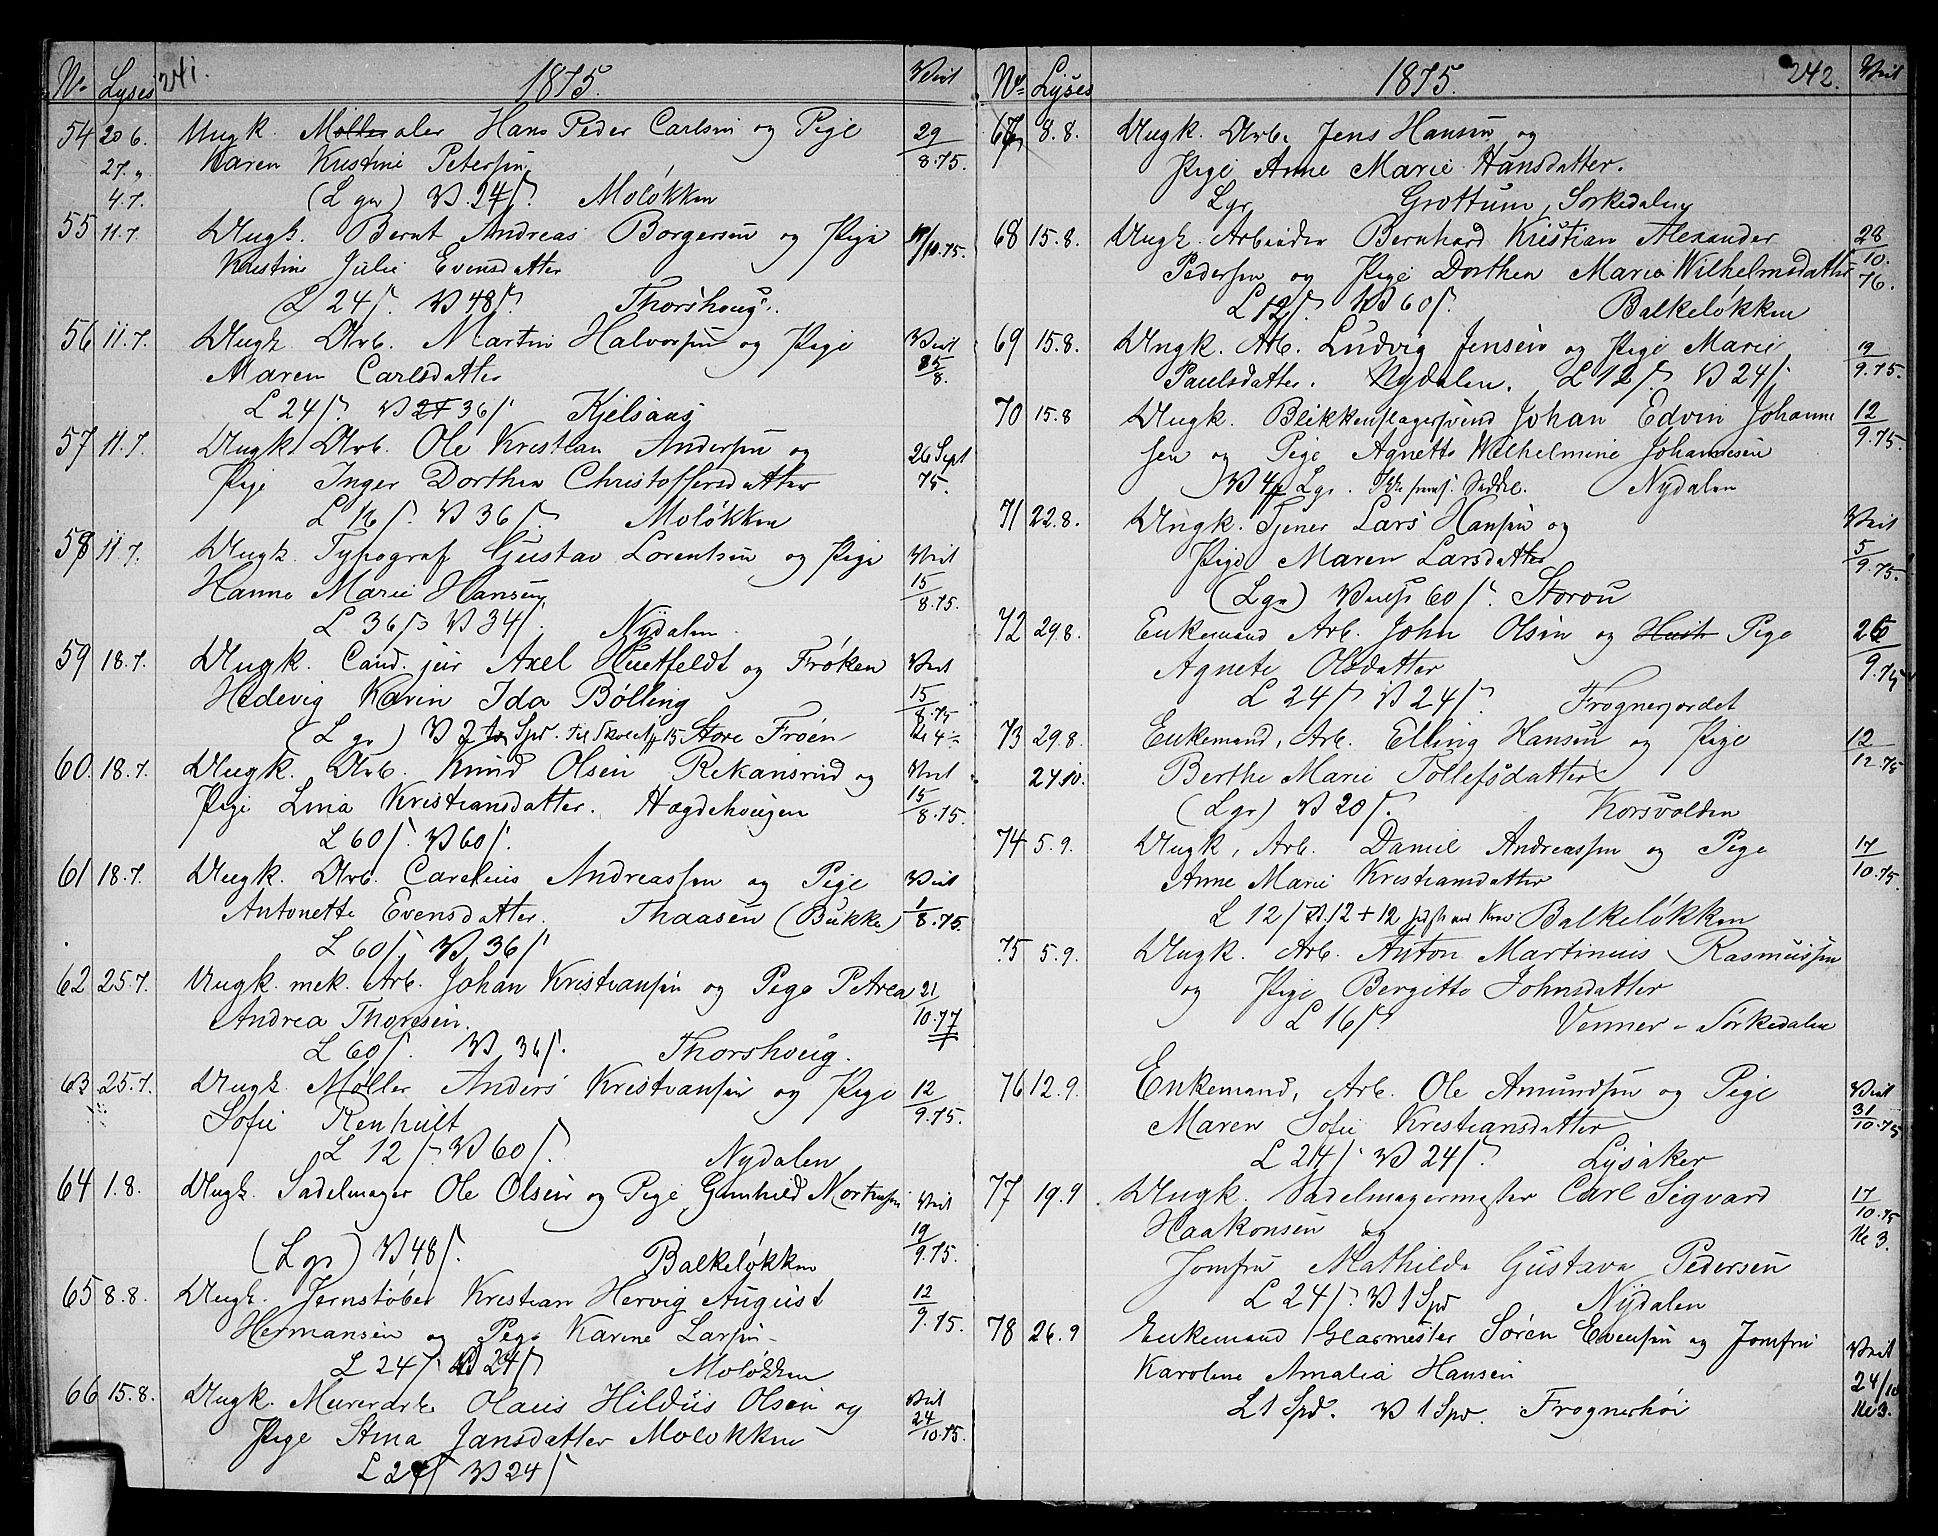 241.
No Lyses 1875. Viet
54 20 6. Ungk. Maler Hans Peder Carlsen og Pige 29/8.75.
27. „ Karen Kristine Petersen
4.7. (L gr) V 24ß Moløkken
55 11.7. Ungk. Bernt Andreas Borgersen og Pige /10.75.
Kristine Julie Evensdatter
L 24ß. V 48ß Thorshoug.
56 11.7. Ungk. Arb. Martin Halvorsen og Pige Viet
Maren Carlsdatter /8.
L 24ß. V 36ß Kjelsaas
57 11.7. Ungk. Arb. Ole Kristian Andersen og 26 Sept
Pige Inger Dorthea Christoffersdatter 75.
L 16ß. V 36ß. Moløkken
58 11.7. Ungk. Typograf Gustav Lorentsen og Pige Viet
Hanne Marie Hansen 15/8.75.
L 36ß V 34ß. Nydalen.
59 18.7. Ungk. Cand. jur Axel Huitfeldt og Frøken Viet
Hedevig Karin Ida Bølling 15/8.75
(L gr) V 2 Spd. Til Skolen 15 Store Frøen Kr 4
60. 18.7. Ungk. Arb. Knud Olsen Rekansrud og Viet
Pige Lina Kristiansdatter. Hægdehougen 15/8.75.
L 60ß. V 60ß.
61 18.7. Ungk. Arb. Carelius Andreassen og Pige Viet
Antonette Evensdatter. Thaasen (Bukke) 1/8.75.
L 60ß V 36ß
62 25.7. Ungk. mek. Arb. Johan Kristiansen og Pige Petrea 21/10.77
Andrea Thoresen.
L 60ß. V 36ß. Thorshoug.
63 25.7. Ungk. Møller Anders Kristiansen og Pige 12/9.75.
Sofie Renhult
L 12ß. V 60ß. Nydalen
64 1.8. Ungk. Sadelmager Ole Olsen og Pige Gunhild Mortensen Viet
(L gr) V 48ß. Balkeløkken 19/9.75.
65 8.8. Ungk. Jernstøber Kristian Hervig August 12/9.75.
Hermansen og Pige Karine Larsen
L 24ß V 24ß Moløkken
66 15.8. Ungk. Murerarb. Olaus Hildus Olsen og Viet
Pige Stina Jansdatter Moløkken 24/10.75.
L 24ß V 24ß
No Lyses 1875. 242. Viet
67 8.8. Ungk. Arb. Jens Hansen og
Pige Anne Marie Hansdatter.
Lgr Grøttum, Sørkedalen
68 15.8. Ungk. Arbeider Bernhard Kristian Alexander 28/10.
Pedersen og Pige Dorthea Marie Wilhelmsdatter 76.
L 12ß. V 60ß. Balkeløkken
69 15.8. Ungk. Arb. Ludvig Jensen og Pige Marie 19/9.75.
Paulsdatter. Nydalen. L 12ß. V 24ß
70 15.8 Ungk. Blikkenslagersvend Johan Edvin Johanne 12/9.75
sen og Pige Agnette Wilhelmine Johannesen
V 4 Lgr. Seddel. Nydalen
71 22.8. Ungk. Tjener Lars Hansen og Viet
Pige Maren Larsdatter 5/9.75.
(Lgr) Vielse 60ß. Storøu
72 29.8. Enkemand Arb. John Olsen og Hush Pige 26/9.75
Agnete Olsdatter
L 24ß V 24ß. Frognerjordet
73 29.8. Enkemand, Arb. Elling Hansen og Pige 12/12.75
24.10. Berthe Marie Tollefsdatter
(Lgr) V 20ß. Korsvolden
74 5.9. Ungk, Arb. Daniel Andreassen og Pige 17/10.75.
Anne Marie Kristiansdatter
L 12ß V. 12 + 12 Balkeløkken
75 5.9. Ungk. Arb. Anton Martinius Rasmussen
og Pige Bergitte Johnsdatter
L 16ß. Venner - Sørkedalen
76 12.9. Enkemand, Arb. Ole Amundsen og Pige Viet
Maren Sofie Kristiansdatter 31/10.75
L 24ß. V 24ß. Lysaker
77 19.9. Ungk. Sadelmagermester Carl Sigvard 17/10.75
Haakonsen og Kr 3.
Jomfru Mathilde Gustava Pedersen
L 24ß. V 1 Spd Nydalen
78 26.9 Enkemand Glasmester Søren Evensen og Jomfru Viet
Karoline Amalia Hansen 24/10
L 1 Spd. V 1 Spd. Frognerhøi Kr 3.